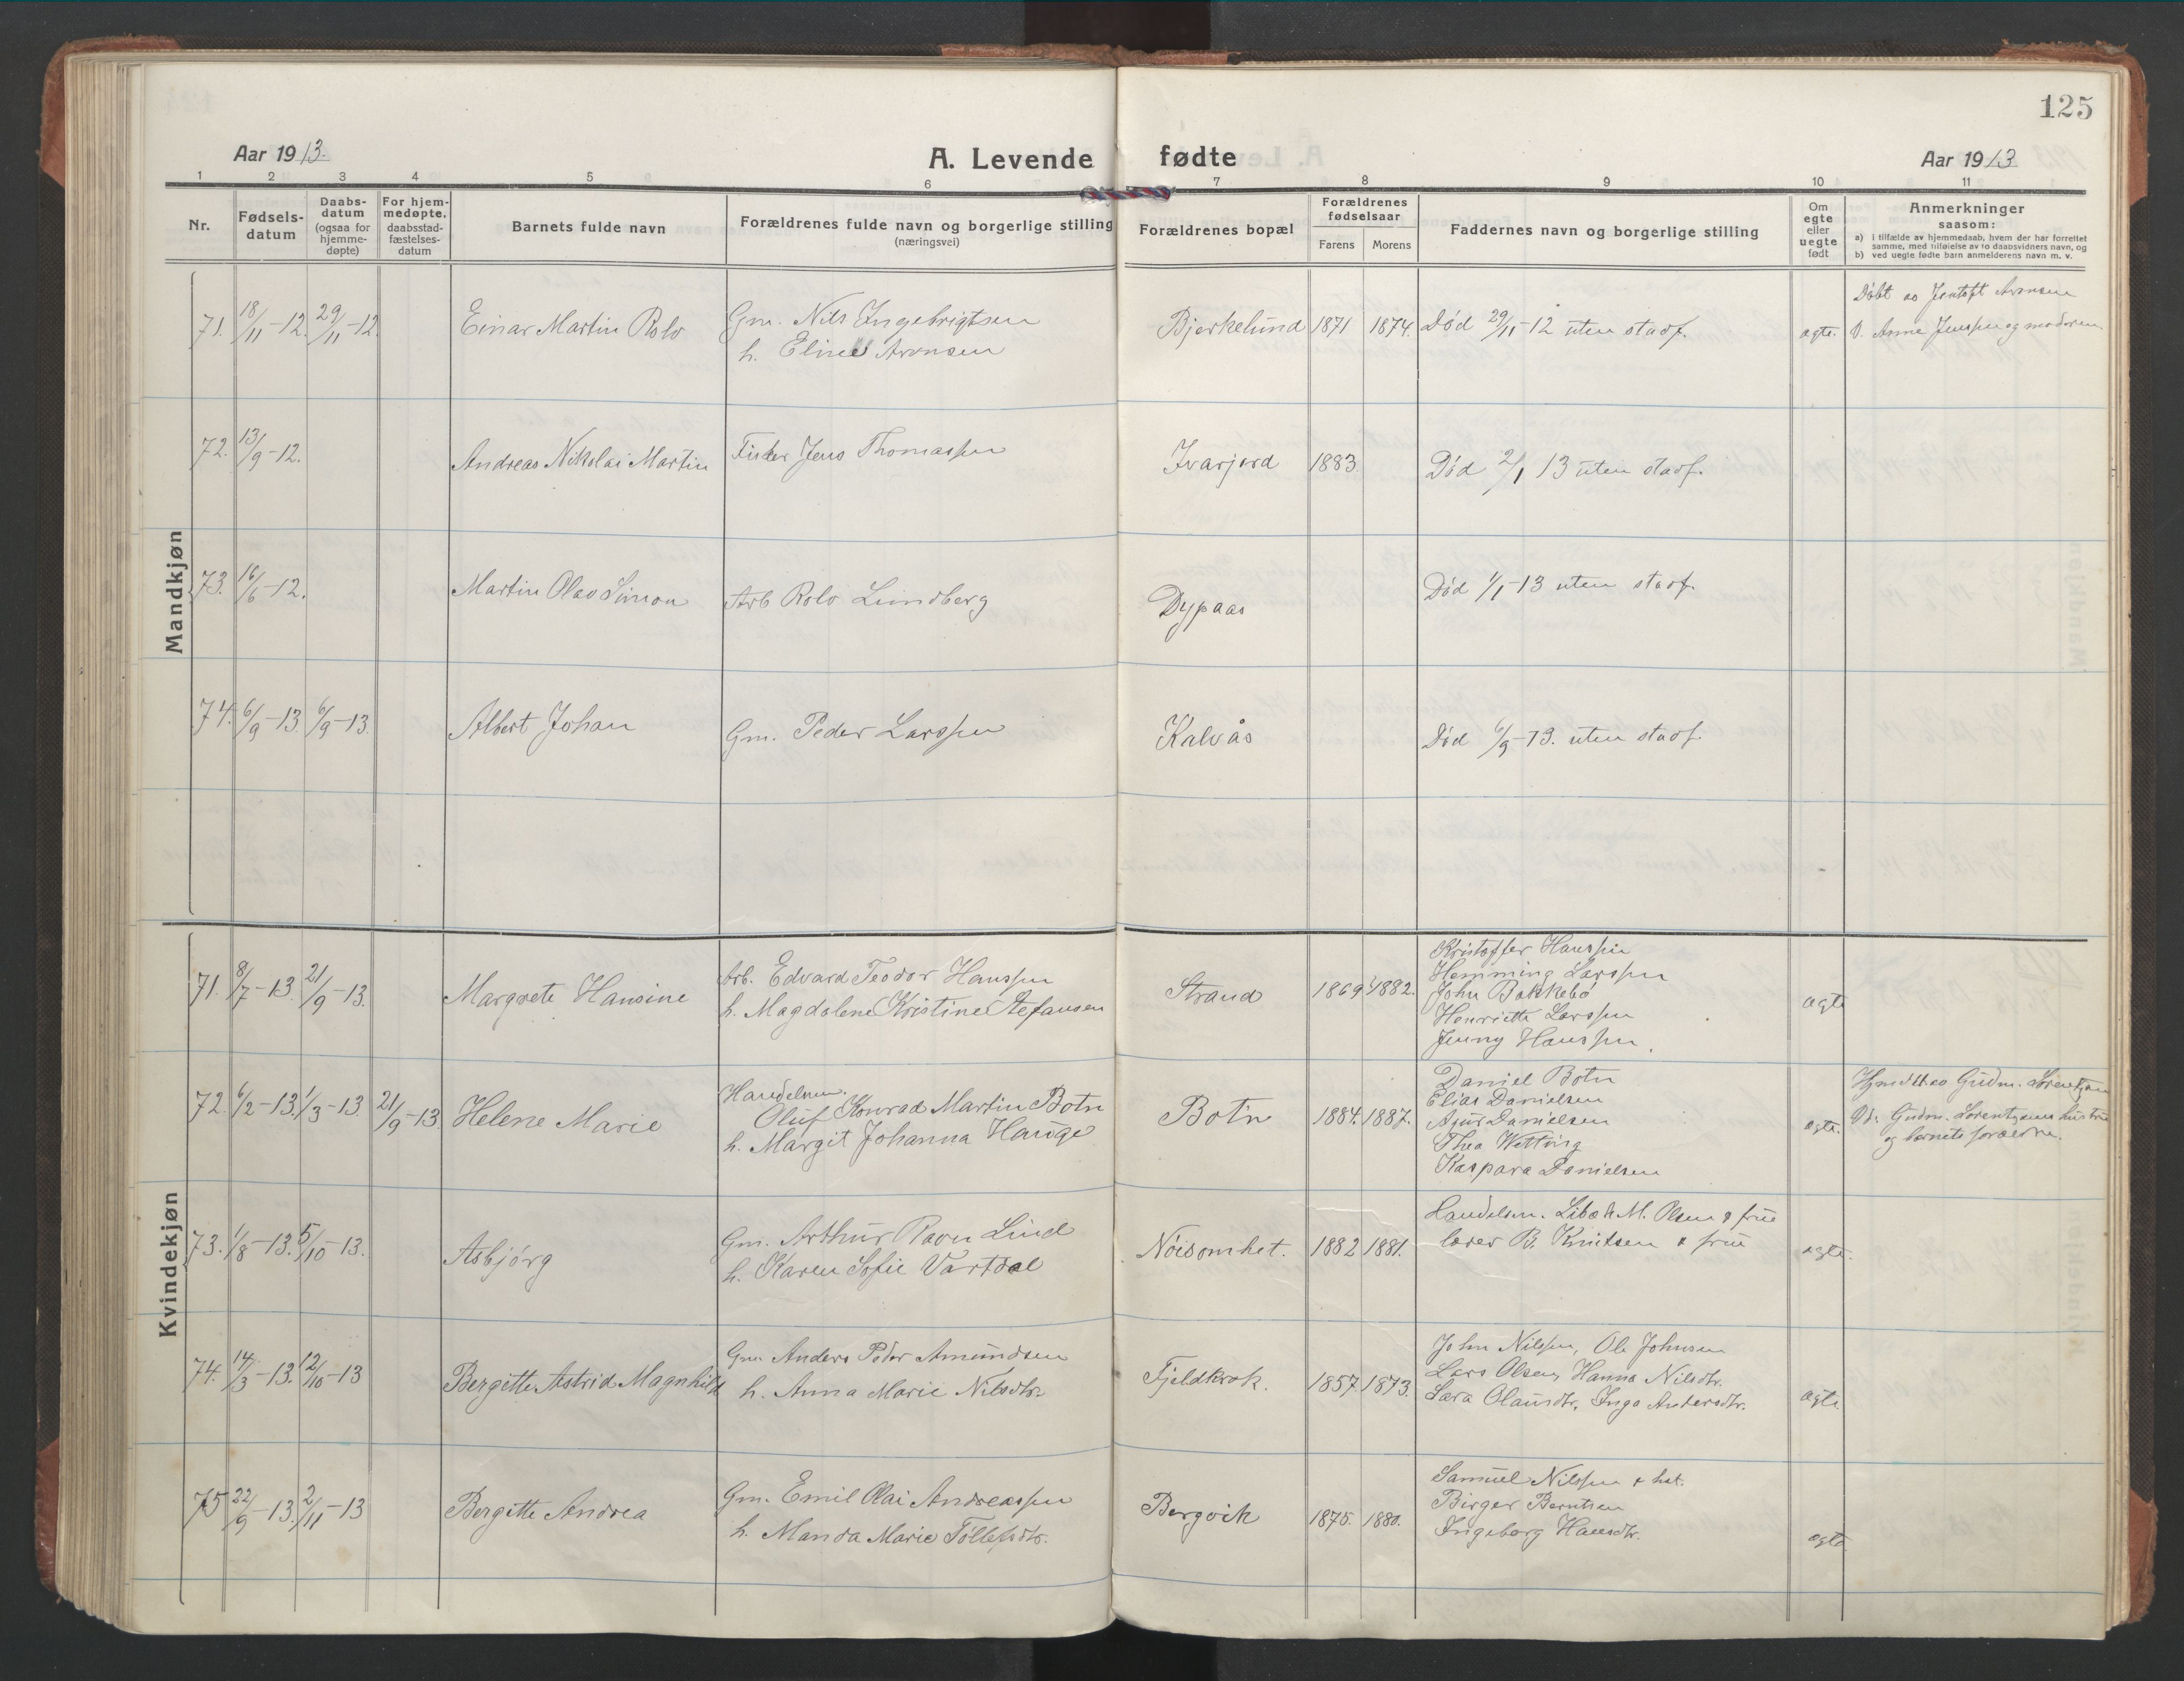 125
Aar 1913.
A. Levende fødte
Aar 1913
1 2 3 4 5 6 7 8 9 10 11
Nr.
Fødsels-
datum
Daabs-
datum
(ogsaa for
hjemme-
døpte)
For hjem-
medøpte,
daabsstad-
fæstelses-
datum
Barnets fulde navn
Forældrenes fulde navn og borgerlige stilling
(næringsvei)
Forældrenes bopæl
Forældrenes
fødselsaar
Farens Morens
Faddernes navn og borgerlige stilling
Om
egte
eller
uegte
født
Anmerkninger
saasom:
a) i tilfælde av hjemmedaab, hvem der har forrettet
samme, med tilføielse av to daabsvidners navn, og
b) ved uegte fødte barn anmelderens navn m. v.
Mandkjøn
71. 18/11-12. 29/11-12. Einar Martin Rolv
Gm. Nils Ingebrigtsen
h. Eline Aronsen
Bjerkelund 1871 1874. Død 29/11-12 uten stadf. ægte.
Døbt av Jentoft Aronsen
V. Anne Jenssen og moderen
72. 13/9-12. Andreas Nikolai Martin
Fisker Jens Thomassen
Ivarjord 1883. Død 2/1 13 uten stadf.
73. 16/6-12. Martin Olav Simon
Arb Rolv Lundberg
Dypaas
Død 1/1-13 uten stadf.
74. 6/9-13. 6/9-13. Albert Johan
Gm. Peder Larssen
Kalvås
Død 6/9-13. uten stadf.
Kvindekjøn
71. 8/7-13. 21/9-13. Margrete Hansine
Arb. Edvard Teodor Hanssen
h. Magdalene Kristine Stefansen
Strand 1869 1882.
Kristoffer Hanssen
Hemming Larssen
John Bakkebø
Henriette Larssen
Jenny Hanssen.
ægte
72. 6/2-13. 1/3-13. 21/9-13. Helene Marie
Handelsm.
Oluf Konrad Martin Botn
h. Margit Johanna Hauge
Botn 1884. 1887.
Daniel Botn
Elias Danielsen
Danielsen
Thea Wetting
Kaspara Danielsen
ægte.
Gudm. Lorentzen
Vd. Gudm. Lorentzens hustru
og barnets forældre.
73. 1/8-13. 5/10-13. Asbjørg
Gm. Arthur Ravn Lind
h. Karen Sofie Vartdal
Nøisomhet. 1882 1881.
Handelsm. M. Olsen & frue
lærer B. Knutsen & frue
ægte.
74. 14/3-13. 12/10-13 Bergitte Astrid Magnhild
Gm. Anders Peder Amundsen
h. Anna Marie Nilsdtr.
Fjeldkrok. 1857 1873.
John Nilssen, Ole Johnsen
Lars Olsen, Hanna Nilsdtr.
Sara Olausdtr, Inga Andersdtr.
ægte.
75 22/9-13. 2/11-13 Bergitte Andrea
Gm. Emil Olai Andreassen
h. Manda Marie Tollefsdtr.
Bergvik 1875. 1880.
Samuel Nilssen & hst.
Birger Berntsen
Ingeborg Hansdtr.
ægte